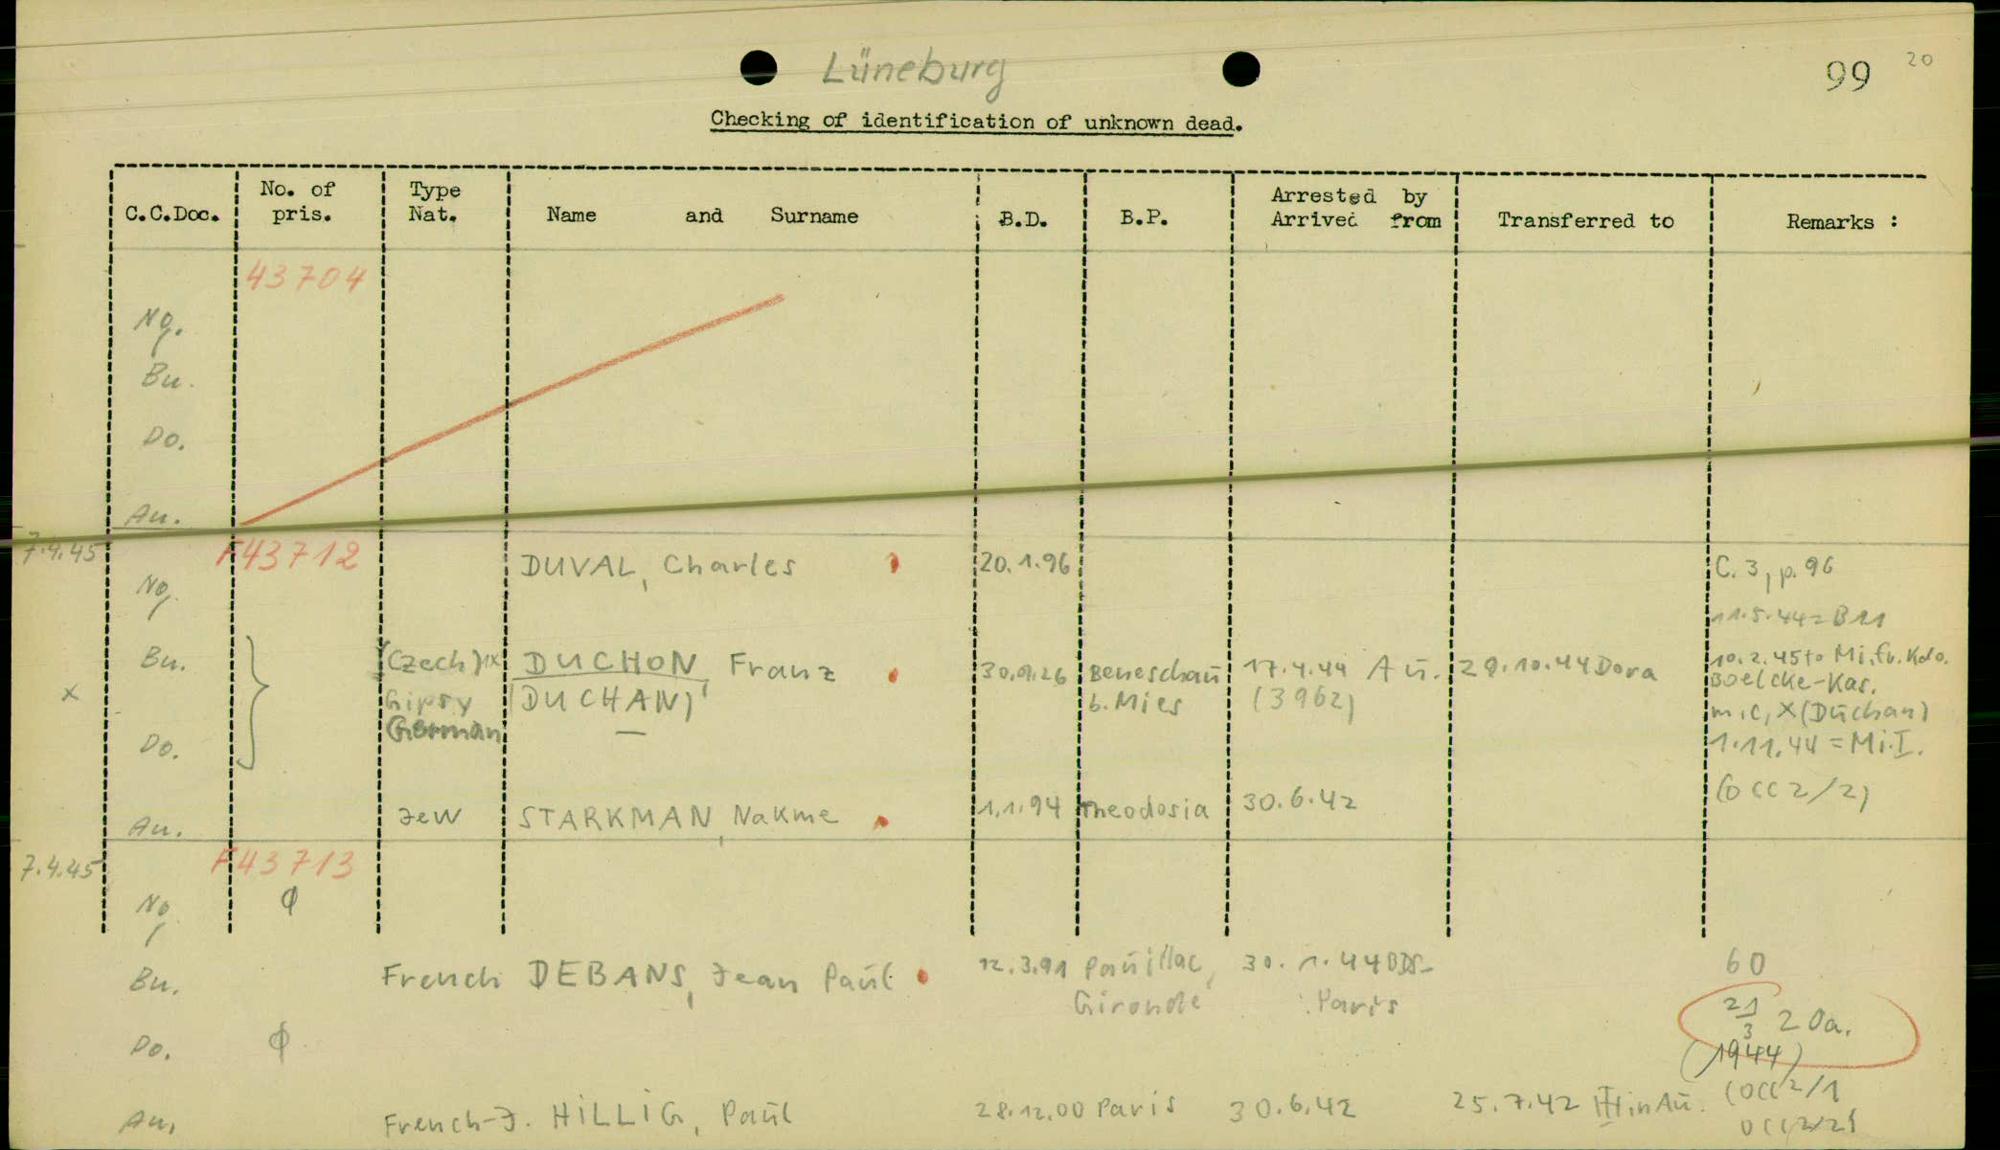 Lüneburg
99 20
Checking of identification of unknown dead.
C.C.Doc. No. of pris. Type Nat. Name and Surname B.D. B.P. Arrested by Arrived from Transferred to Remarks :
43704
Ng.
Bu.
Do.
Au.
7.4.45 F43712 DUVAL, Charles 20.1.96 C. 3, p. 96
Ng.
11.5.44=B11
Bu. (Czech) DUCHON, Franz 30.9.26 Beneschau 17.4.44 Au. 29.10.44 Dora 10.2.45 to Mi. Kdo.
x Gipsy (DUCHAN) b. Mies (3962) Boelcke-Kas.
German m.c, X (Duchan)
Do. 1.11.44 = Mi.I.
(OCC 2/2)
Au. Jew STARKMAN, Nakme 1.1.94 Theodosia 30.6.42
7.4.45 F43713
Ng. φ
60
Bu. French DEBANS, Jean Paul 12.3.91 Pauillac, 30.1.44 BDS-
Gironde Paris
21/3 20a.
Do. φ (1944)
Au. French-J. HILLIG, Paul 28.12.00 Paris 30.6.42 25.7.42 in Au. (OCC 2/1
OCC 2/2)